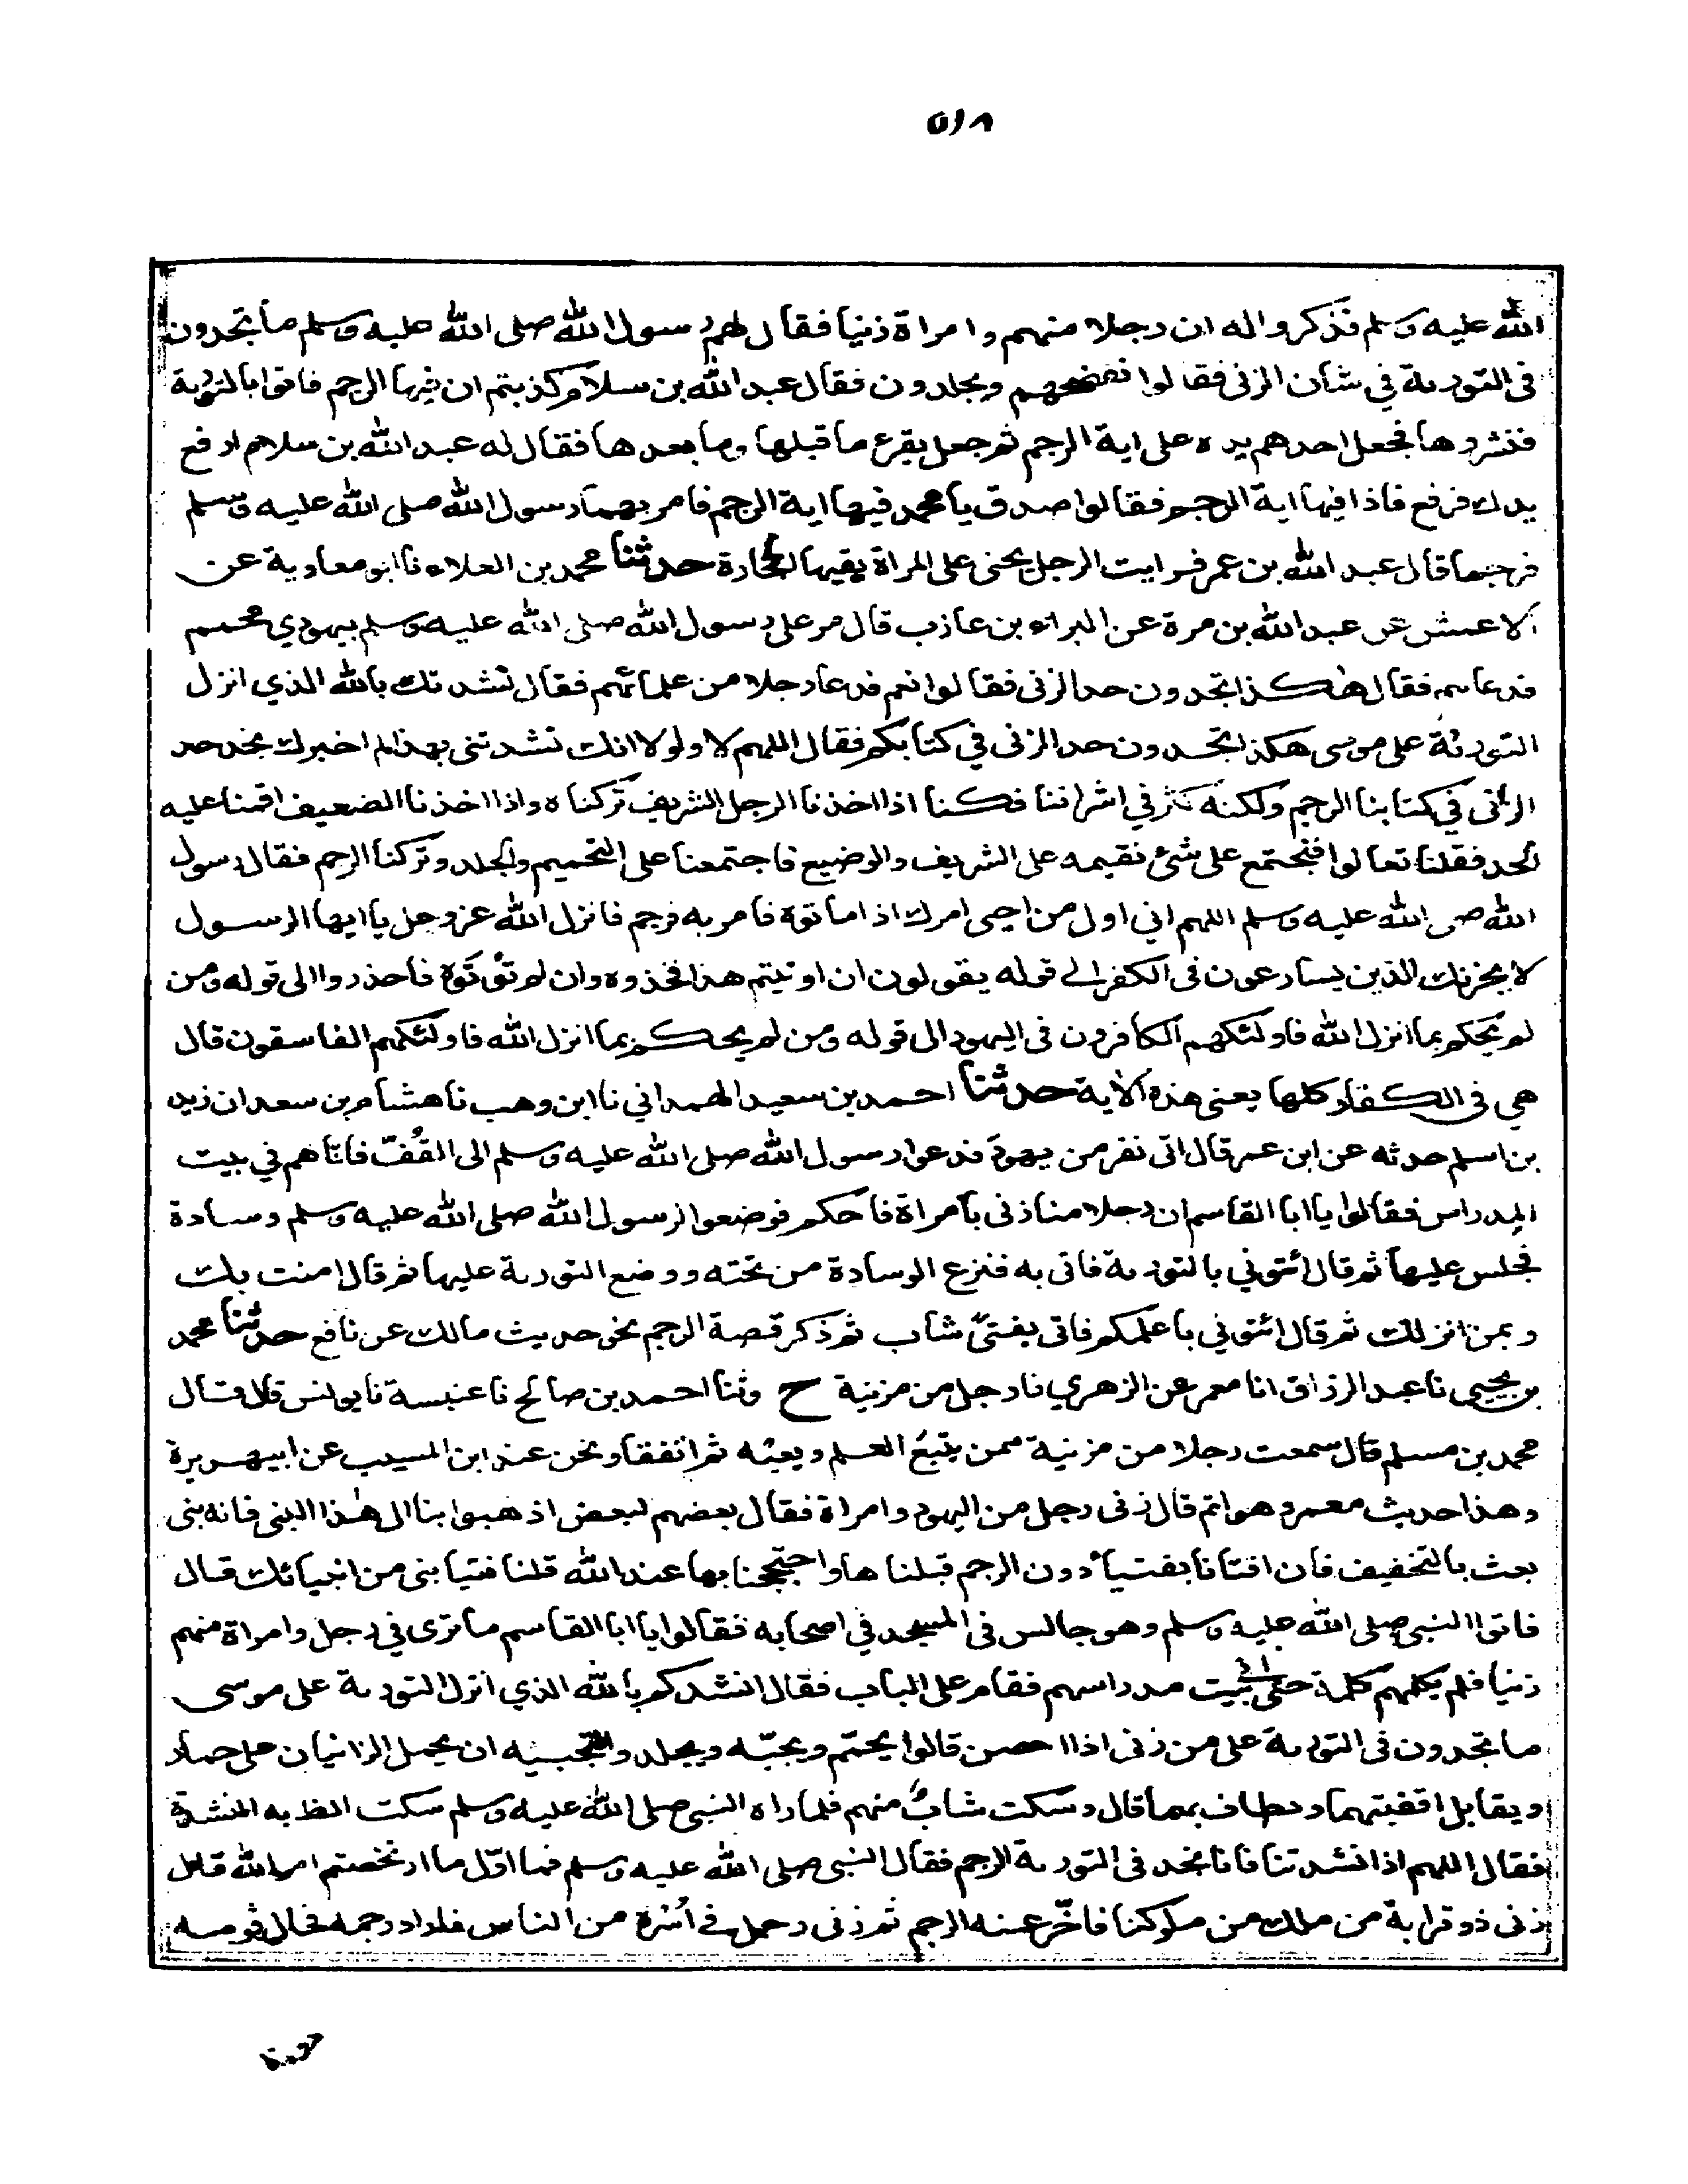 ٥١٨
الله عليه وسلم فذكروا له ان رجلا منهم وامراة زنيا فقال لهم رسول الله صلى الله عليه وسلم ما تجدون
فى التورىة في شأن الزنى فقالوا نفضحهم ويجلدون فقال عبد الله بن سلام كذبتم ان فيها الرجم فاتوا بالتورىة
فنشروها فجعل احدهم يده على اية الرجم ثم جعل يقرء ما قبلها وما بعدها فقال له عبد الله بن سلام ارفع
يدك فرفع فاذا فيها اية الرجم فقالوا صدق يا محمد فيها اية الرجم فامر بهما رسول الله صلى الله عليه وسلم
فرجما قال عبد الله بن عمر فرايت الرجل يحنى على المراة يقيها الحجارة حدثنا محمد بن العلاء نا ابو معاوية عن
الاعمش عن عبد الله بن مرة عن البراء بن عازب قال مر على رسول الله صلى الله عليه وسلم بيهودي محمم
فدعاهم فقال هكذا تجدون حد الزنى فقالوا نعم فدعا رجلا من علمائهم فقال نشدتك بالله الذي انزل
التورىة على موسى هكذا تجدون حد الزنى في كتابكم فقال اللهم لا ولولا انك نشدتنى بهذا لم اخبرك نجد حد
الزانى في كتابنا الرجم ولكنه كثر في اشرافنا فكنا اذا اخذنا الرجل الشريف تركناه واذا اخذنا الضعيف اقمنا عليه
الحد فقلنا تعالوا فنجتمع على شئ نقيمه على الشريف والوضيع فاجتمعنا على التحميم والجلد وتركنا الرجم فقال رسول
الله صلى الله عليه وسلم اللهم اني اول من احيى امرك اذ اماتوه فامر به فرجم فانزل الله عز وجل يا ايها الرسول
لا يحزنك الذين يسارعون فى الكفر الى قوله يقولون ان اوتيتم هذا فخذوه وان لم تؤتوه فاحذروا الى قوله ومن
لم يحكم بما انزل الله فاولئك هم الكافرون فى اليهود الى قوله ومن لم يحكم بما انزل الله فاولئك هم الفاسقون قال
هي فى الكفار كلها يعنى هذه الاية حدثنا احمد بن سعيد الهمداني نا ابن وهب نا هشام بن سعد ان زيد
بن اسلم حدثه عن ابن عمر قال اتى نفر من يهود فدعوا رسول الله صلى الله عليه وسلم الى القُفّ فاتاهم في بيت
المدراس فقالوا يا ابا القاسم ان رجلا منا زنى بامراة فاحكم فوضعوا لرسول الله صلى الله عليه وسلم وسادة
فجلس عليها ثم قال ائتوني بالتورىة فاتى به فنزع الوسادة من تحته ووضع التورىة عليها ثم قال امنت بك
وبمن انزلك ثم قال ائتوني باعلمكم فاتى بفتىً شاب ثم ذكر قصة الرجم نحو حديث مالك عن نافع حدثنا محمد
بن يحيى نا عبد الرزاق انا معمر عن الزهري نا رجل من مزينة ح وثنا احمد بن صالح نا عنبسة نا يونس قال قال
محمد بن مسلم قال سمعت رجلا من مزينة ممن يتبعُ العلم ويعيه ثم اتفقا ونحن عند ابن المسيب عن ابي هريرة
وهذا حديث معمر وهو اتم قال زنى رجل من اليهود وامراة فقال بعضهم لبعض اذهبوا بنا الى هذا النبى فانه نبى
بعث بالتخفيف فان افتانا بفتيا دون الرجم قبلناها واحتججنا بها عند الله قلنا فتيا نبى من انبيائك قال
فاتوا النبى صلى الله عليه وسلم وهو جالس فى المسجد في اصحابه فقالوا يا ابا القاسم ما ترى في رجل وامراة منهم
زنيا فلم يكلمهم كلمة حتى اتى بيت مدراسهم فقام على الباب فقال انشدكم بالله الذي انزل التورىة على موسى
ما تجدون فى التورىة على من زنى اذا احصن قالوا يحمّم ويجبّه ويجلد والتجبيه ان يحمل الزانيان على حمار
ويقابل اقفيتهما ويطاف بهما قال وسكت شابٌ منهم فلما راه النبى صلى الله عليه وسلم سكت الظ به النشدة
فقال اللهم اذ نشدتنا فانا نجد فى التورىة الرجم فقال النبى صلى الله عليه وسلم فما اوّل ما ارتخصتم امر الله قال
زنى ذو قرابة من ملك من ملوكنا فاخّر عنه الرجم ثم زنى رجل فى اُسْرة من الناس فاراد رجمه فحال قومه